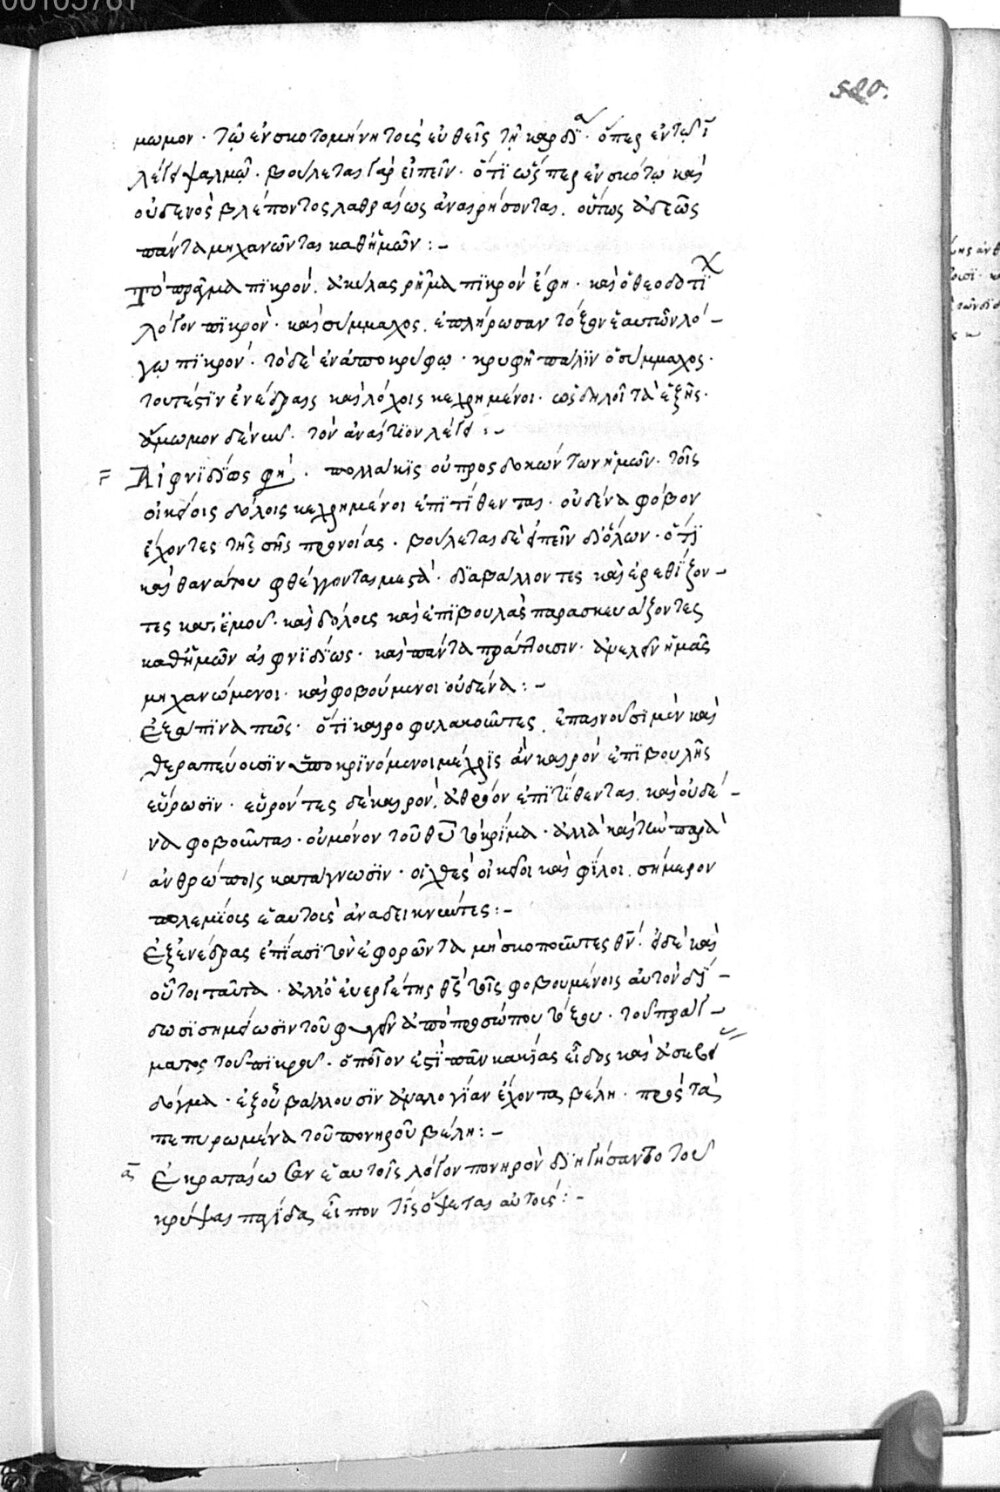 00105761
520.
μωμον · τῷ ἐν σκοτομήνη τοὺς εὐθεῖς τῇ καρδία · ὅπερ ἐν τῷ ι
λέγει ψαλμῷ · βούλεται γὰρ εἰπεῖν · ὅτι ὥσπερ ἐν σκότω καὶ
οὐδενὸς βλέποντος λαθραίως ἀναιρήσονται · οὕτως ἀδεῶς
πάντα μηχανῶνται καθ' ἡμῶν : –
Τὸ πρᾶγμα πικρόν · ἀκύλας ῥῆμα πικρὸν ἔφη · καὶ ὁ θεοδοτίχ
λόγον πικρὸν · καὶ σύμμαχος · ἐπλήρωσαν τόξον ἑαυτῶν λό –
γω πικρόν · τὸ δὲ ἐν ἀποκρύφω · κρυφῆ πάλιν ὁ σύμμαχος ·
τουτέστιν ἐνέδραις καὶ λόχοις κεχρημένοι · ὡς δηλοῖ τὰ ἑξῆς ·
ἄμωμον δὲ νῦν · τὸν ἀναίτιον λέγει : –
Αἰφνιδίως φη · πολλάκις οὐ προσδοκώντων ἡμῶν · τοῖς
οἰκείοις δόλοις κεχρημένοι ἐπιτίθενται · οὐδένα φόβον
ἔχοντες τῆς σῆς προνοίας · βούλεται δὲ εἰπεῖν δι' ὅλων · ὅτι
καὶ θανάτου φθέγγονται μετὰ · διαβάλλοντες καὶ ἐρεθίζον –
τες κατ' ἐμοῦ · καὶ δόλους καὶ ἐπιβουλὰς παρασκευάζοντες
καθ' ἡμῶν αἰφνιδίως · καὶ πάντα πράττουσιν · ἀνελεῖν ἡμᾶς
μηχανώμενοι · καὶ φοβούμενοι οὐδένα : –
Ἐξάπινα πῶς · ὅτι καιροφυλακοῦντες · ἐπαινοῦσι μὲν καὶ
θεραπεύουσιν ὑποκρινόμενοι μέχρις ἂν καιρὸν ἐπιβουλῆς
εὕρωσιν · εὑρόντες δὲ καιρὸν · ἀθρόον ἐπιτίθενται · καὶ οὐδέ –
να φοβοῦνται · οὐ μόνον τοῦ θυ τὸ κρίμα · ἀλλὰ καὶ τὴν παρὰ
ἀνθρώποις κατάγνωσιν · οἱ χθὲς οἰκεῖοι καὶ φίλοι · σήμερον
πολεμίους ἑαυτοὺς ἀναδεικνύντες : –
Ἐξ ἐνέδρας ἐπίασι τὸν ἐφορῶντα μὴ σκοποῦντες θν · εἰ δὲ καὶ
οὗτοι ταῦτα · ἀλλ' ὁ εὐεργέτης θς τοῖς φοβουμένοις αὐτὸν δί –
δωσι σημείωσιν τοῦ φυγεῖν ἀπὸ προσώπου τόξου · τοῦ πράγ –
ματος τοῦ πικροῦ · ὁποῖον ἐστὶ πᾶν κακίας εἶδος καὶ ἀσεβὲς
δόγμα · ἐξ οὗ βάλλουσιν ἀναλογίαν ἔχοντα βέλη · πρὸς τὰ
πεπυρωμένα τοῦ πονηροῦ βέλη : –
Ἐκραταίωσαν ἑαυτοῖς λόγον πονηρὸν διηγήσαντο τοῦ
κρύψαι παγίδα, εἶπον τίς ὄψεται αὐτούς : –